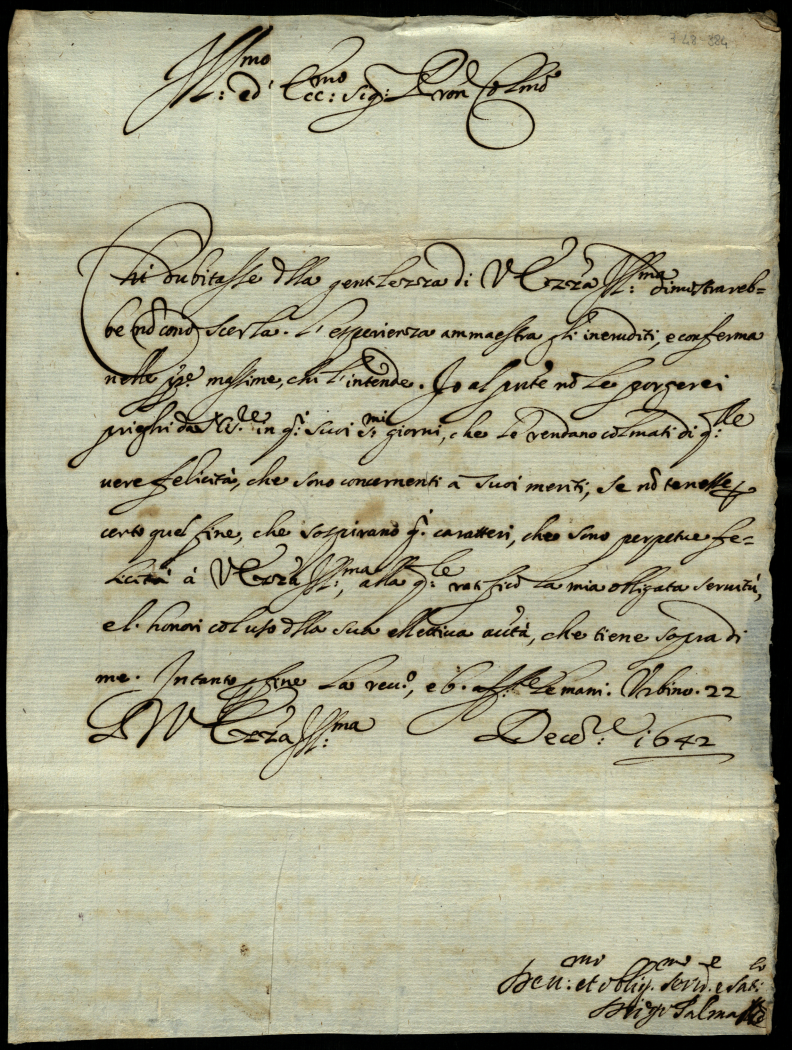 7 48-384
Ill:mo ed' Ecc:mo Sig: Pron Colmo
Chi dubitasse dlla gentilezza di V Eccza Ill:ma dimostrareb=
be nō conoscerla. L'esperienza ammaestra gli ineruditi, e conferma
nelle massime, chi l'intende. Io al pnte nō le porgerei
prieghi da in q:i suoi s:mi giorni, che le rendano colmati di q:lle
uere felicità, che sono concernenti a suoi meriti, se nō tenesse
certo quel fine, che sospirano q:i caratteri, che sono perpetue fe=
licità à V Eccza Ill:ma, alla q:le ratifico la mia obligata seruitù,
e l'honori col uso dlla sua auttà, che tiene sopra di
me. Intanto fine la reu:o, e b. aff:te le mani. Urbino. 22
D V Eccza Ill:ma Dece:e 1642
Deu:mo et oblig:mo seru:e e
Palma